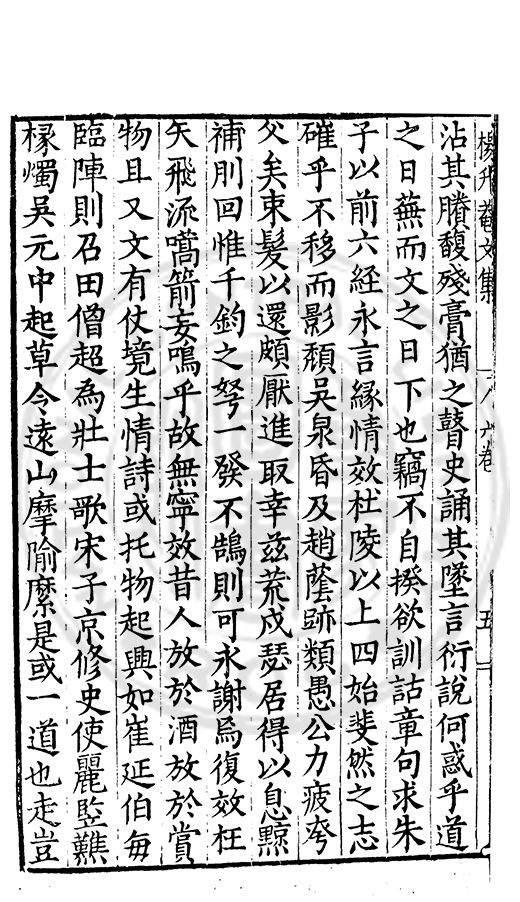 楊升菴文集 八 六卷 五
沾其賸馥殘膏猶之瞽史誦其墜言衍說何惑乎道
之日蕪而文之日下也竊不自揆欲訓詁章句求朱
子以前六經永言緣情效杜陵以上四始斐然之志
確乎不移而影頹吳泉昏及趙蔭跡類愚公力疲夸
父矣束髮以還頗厭進取幸茲荒戍瑟居得以息黥
補刖回惟千鈞之弩一發不鵠則可永謝烏復效枉
矢飛流嚆箭妄鳴乎故無寧效昔人放於酒放於賞
物且又文有仗境生情詩或托物起興如崔延伯每
臨陣則召田僧超為壯士歌宋子京修史使麗竪㸐
椽燭吳元中起草令遠山摩隃麋是或一道也走豈